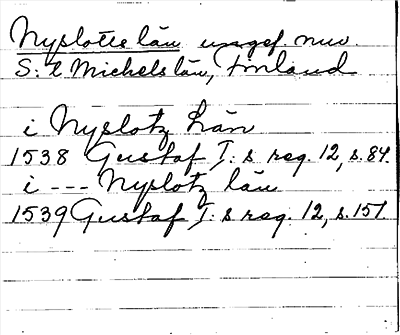 Nyslotts län ungef. nuv.
S:t Michels län, Finland
i Nyslotz Län
1538 Gustaf I:s reg. 12, s. 84.
i --- Nyslotz län
1539 Gustaf I:s reg. 12, s. 157